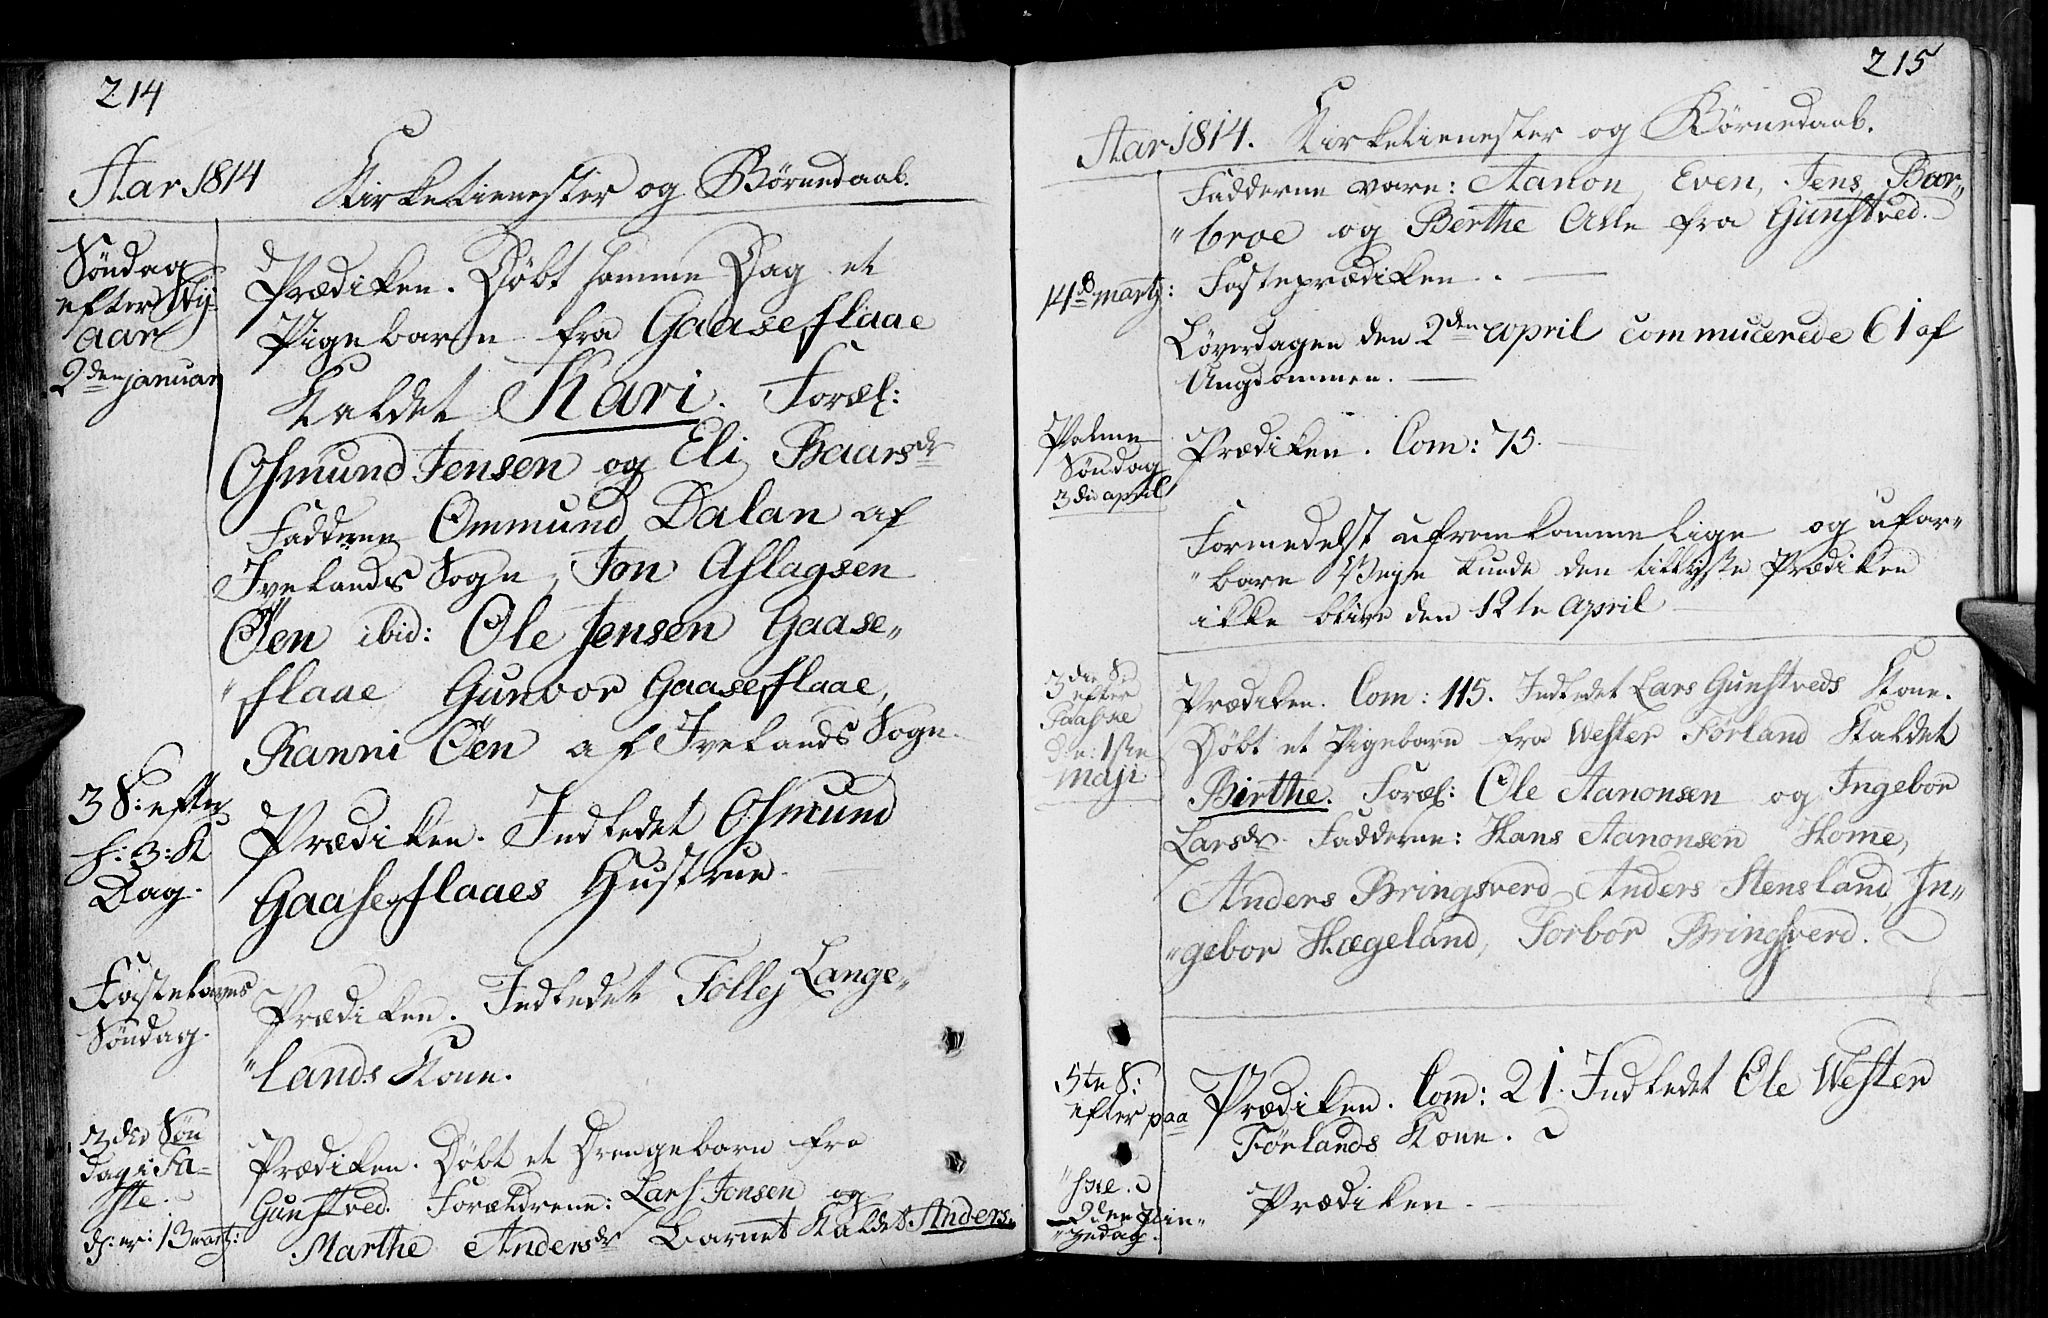 214
Aar 1814 Kirketienester og Börnedaab.
Söndag
efter Ny
aar
2den januar
Prædiken. Döbt samme Dag et
Pigebarn fra Gaaseflaae
Kaldet Kari. Foræl:
Osmund Jensen og Eli Baarsdr
Faddere Ommund Dalan af
Ivelands Sogn, Jon Aslagsen
Öen ibid: Ole Jensen Gaase„
„flaae, Gunvor Gaaseflaae,
Ranni Öen af Ivelands Sogn.
3 S: efter
h: 3: K
Dag.
Prædiken. Indledet Osmund
Gaaseflaaes Hustrue.
Fastelavns
Söndag.
Prædiken. Indledet Tollej Lange„
„lands Kone.
3die Sön
dag i Fa-
ste.
d: er: 13 martz:
Prædiken. Döbt et Drengebarn fra
Gunstved. Forældrene: Lars Jensen og
Marthe Andersdr Barnet Kaldt Anders.
215
Aar 1814. Kirketienester og Börnedaab.
Fadderne vare: Aanon, Even, Jens, Bar„
„broe og Berthe Alle fra Gunstved.
14de martz: Fasteprædiken.
Löverdagen den 2den april commucerede 61 af
Ungdommen.
Palme
Söndag
3die april
Prædiken. Com: 75.
Formedelst ufremkommelige og ufar„
„bare Veje kunde den tillyste Prædiken
ikke blive den 12te April
3die S.
efter
Paaske
die: 1ste
maji
Prædiken. Com: 115. Indledet Lars Gunstveds Kone.
Döbt et Pigebarn fra Wester Förland Kaldet
Birthe. Foræl: Ole Aanonsen og Ingebor
Larsdr. Fadderne: Hans Aanonsen Home,
Anders Bringsverd Anders Stensland, In„
„gebor Hægeland, Torbor Bringsverd.
5te S:
efter paa
„ske.
Prædiken. Com: 21. Indledet Ole Wester
Förlands Kone.
2den Pin„
„gedag.
Prædiken.